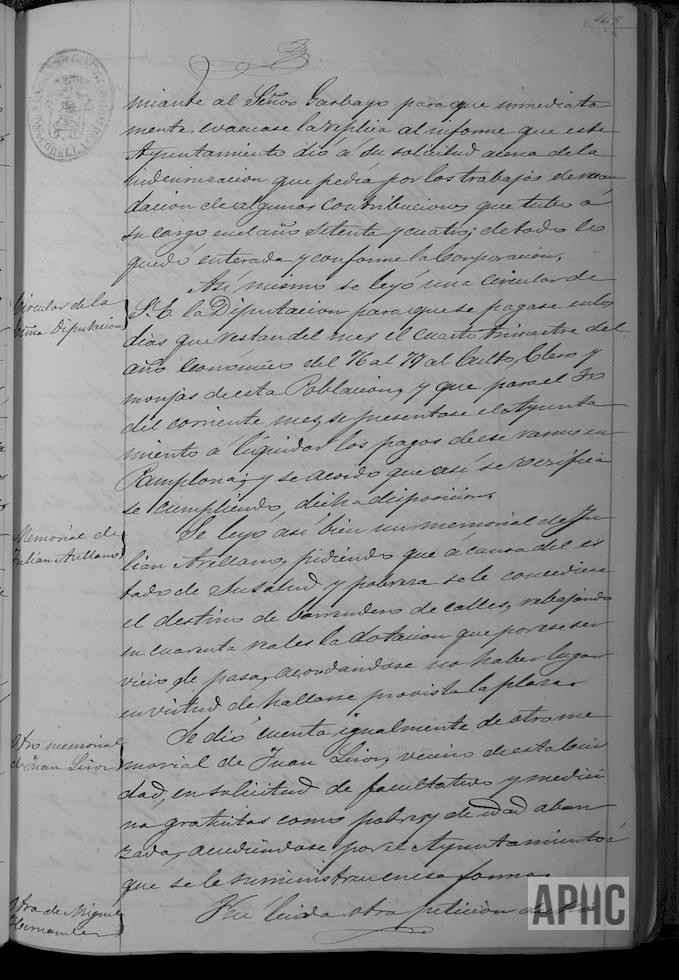 148
miante al Señor Garbayo para que inmediata
mente evacuase la replica al informe que este
Ayuntamiento dió á su solicitud acerca de la
indemnizacion que pedia por los trabajos de recau
dacion de algunas contribuciones que tubo á
su cargo en el año setenta y cuatro; de todo lo
quedó enterada y conforme la Corporacion.
Circular de la
Exma Diputacion
Asi mismo se leyó una circular de
S. E. la Diputacion para que se pagase en los
dias que restan del mes el cuarto trimestre del
año Económico del 76 al 77 al Culto, Clero y
monjas de esta Poblacion, y que para el 30
del corriente mes, se presentase el Ayunta
miento á liquidar los pagos de ese ramo en
Pamplona; y se acordó que asi se verifica
se cumpliendo, dicha disposicion.
Memorial de
Julian Arellano
Se leyó asi bien un memorial de Ju
lian Arellano, pidiendo que á causa del es
tado de su salud y pobreza se le concediese
el destino de barrendero de calles, rebajando
en cuarenta reales la dotacion que por ese ser
vicio, se pasa, acordandose no haber lugar
en virtud de hallarse provista la plaza.
Otro memorial
de Juan
Se dió cuenta igualmente de otro me
morial de Juan vecino de esta Ciu
dad, en solicitud de facultativo y medici
na gratuitas como pobre, y de edad aban
zada, accediendose por el Ayuntamiento á
que se le suministrare en esa forma.
Otra de Miguel
Hernandez
Fué leida otra peticion de Mi
APHC